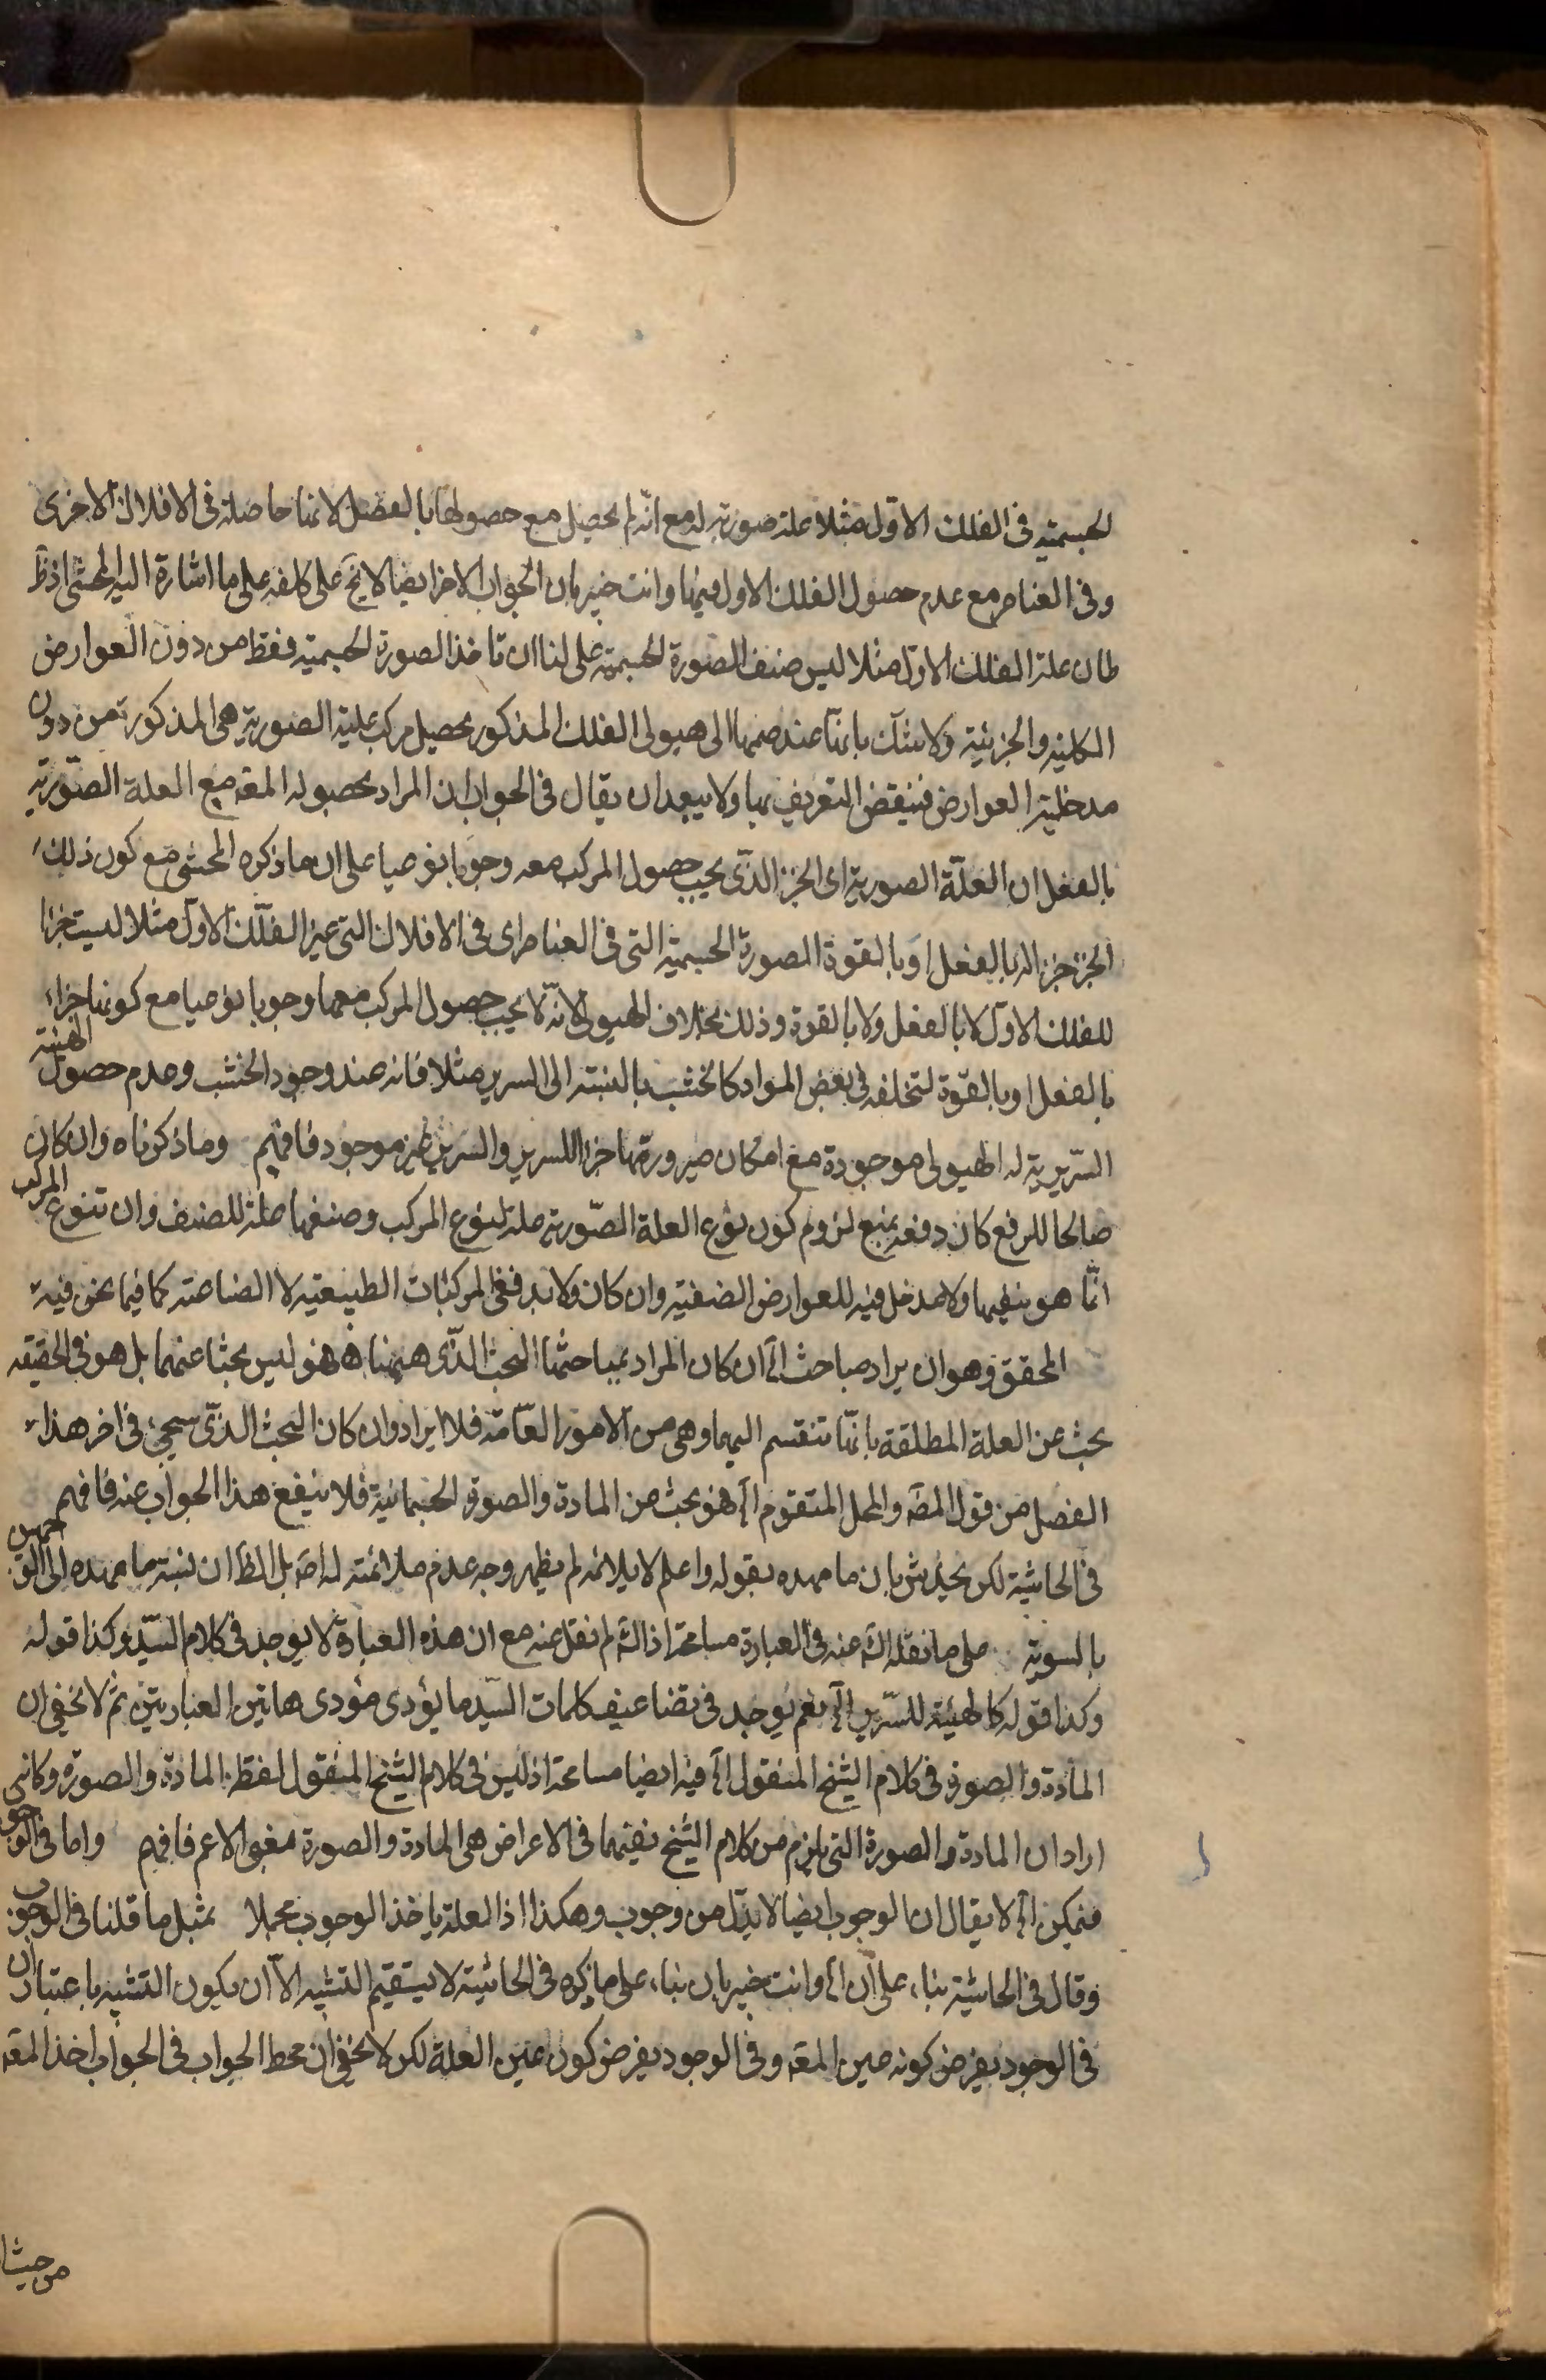 الجسمية فى الفلك الاول مثلا علة صورية له مع انه لم يحصل مع حصولها بالفعل لانها حاصلة فى الافلاك الاخرى
وفى العناصر مع عدم حصول الفلك الاول فيها وانت خبير بان الجواب الاخر ايضا لا يخ على كلفه على ما اشارة اليه المحشى اذ ظ
ان علة الفلك الاول مثلا ليس صنف الصورة الجسمية على لنا ان ناخذ الصورة الجسمية فقط من دون العوارض
الكلية والجزئية ولا شك بانها عند ضمها الى هيولى الفلك المذكور يحصل مركب علية الصورية هى المذكورة من دون
مدخلية العوارض فينتقض التعريف بها ولا يبعد ان يقال فى الجواب ان المراد بحصوله المقه مع العلة الصورية
بالفعل ان العلة الصورية اى الجزء الذى يجب حصول المركب معه وجوبا نوعيا على ان ما ذكره المحشى مع كون ذلك
الجزء جزء اله بالفعل او بالقوة الصورة الجسمية التى فى العناصر اى فى الافلاك التى غير الفلك الاول مثلا ليست جزأ
للفلك الاول لا بالفعل ولا بالقوة وذلك بخلاف الهيولى لانه لا يجب حصول المركب معها وجوبا نوعيا مع كونها جزاء
بالفعل او بالقوة لتخلفه فى بعض المواد كالخشب بالنسبة الى السرير مثلا فانه عند وجود الخشب وعدم حصول الهيئة
السريرية له الهيولى موجودة مع امكان صيرورتها جزا للسرير والسرير غير موجود فافهم وما ذكرناه وان كان
صالحا للرفع كان دفعه بمنع لزوم كون نوع العلة الصورية علة لنوع المركب وصنفها علة للصنف وان تنوع المركب
انما هو بنفيها ولا مدخل فيه للعوارض الصنفية وان كان ولا بد ففى المركبات الطبيعية لا الصناعية كما فيما نحن فيه
المحقق وهو ان يراد مباحث الخ ان كان المراد بمباحثها البحث الذى ههنا فهو ليس بحثا عنهما بل هو فى الحقيقه
بحث عن العلة المطلقة بانها تنقسم اليهما وهى من الامور العامة فلا ايراد وان كان البحث الذى سيجئ فى اخر هذا
الفصل من قول المصه والمحل المتقوم الخ فهو بحث عن المادة والصورة الجسمانية فلا ينفع هذا الجواب عنه فافهم
فى الحاشية لكن يخدش بان ما مهده بقوله واعلم لا يلائمه لم يظهر وجه عدم ملائمته له اصه بل الظ ان نسبة ما مهده الى
بالسوية على ما نقله الشه عنه فى العبارة مسامحة اذ الشه لم نقل عنه مع ان هذه العبارة لا يوجد فى كلام السيد وكذا قوله
وكذا قوله كالهيئة للسرير الخ نعم يوجد فى تضاعيف كلمات السيد ما يؤدى مؤدى هاتين العبارتين ثم لا يخفى ان
المادة والصورة فى كلام الشيخ المنقول الخ فيه ايضا مسامحة اذ ليس فى كلام الشيخ المنقول لفظ المادة والصورة وكانه
اراد ان المادة والصورة التى يلزم من كلام الشيخ نفيهما فى الاعراض هى المادة والصورة بمعنى الاعم فافهم واما فى الوجوب
فيمكن الخ لا يقال ان الوجوب ايضا لا بد له من وجوب وهكذا اذ العلة ياخذ الوجوب مجملا بمثل ما قلنا فى الوجوب
وقال فى الحاشية بناء على ان الخ وانت خبير بان بناء على ما ذكره فى الحاشية لا يستقيم التشبيه الا ان يكون التشبيه باعتبار ان
فى الوجود يفرض كونه عين المقه وفى الوجود يفرض كون عين العلة لكن لا يخفى ان محط الجواب فى الجواب اخذ المقه
من حيث